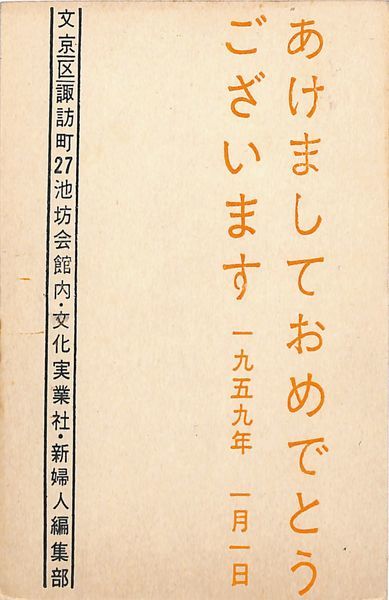 あけましておめでとう
ございます 一九五九年 一月一日
文京区諏訪町27池坊会館内・文化実業社・新婦人編集部